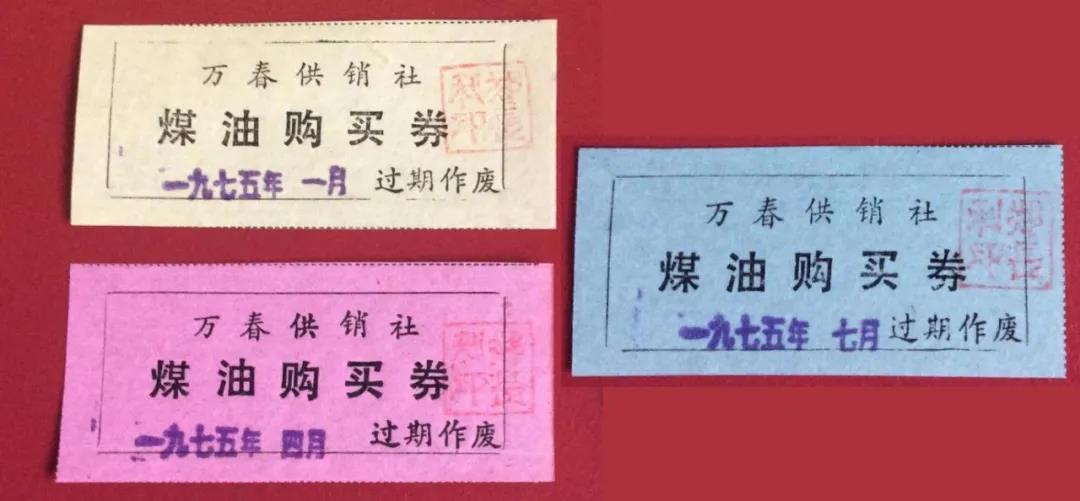 万春供销社
煤油购买券
一九七五年 一月 过期作废
万春供销社
煤油购买券
一九七五年 四月 过期作废
万春供销社
煤油购买券
一九七五年 七月 过期作废